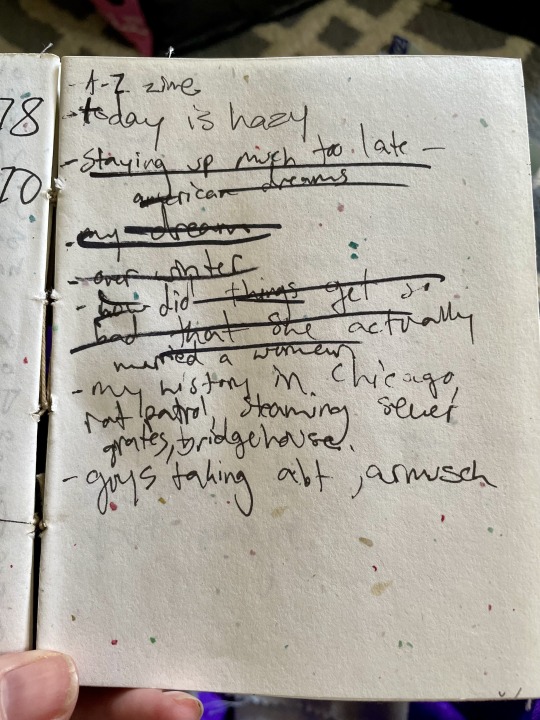 78
10
- A-Z zines
- today is hazy
- Staying up much too late -
american dreams
- my dreams
- over winter
- how did things get so
bad that she actually
married a women
- my history in Chicago,
rat patrol, steaming sewer
grates, bridgehouse.
- guys taking abt ,